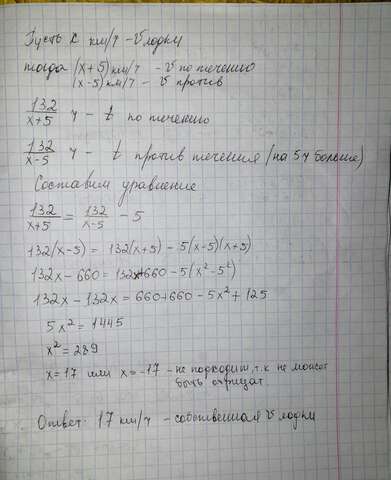 Пусть x км/ч - V лодки
тогда (x+5) км/ч - V по течению
(x-5) км/ч - V против
132/x+5 ч - t по течению
132/x-5 ч - t против течения (на 5ч больше)
Составим уравнение
132/x+5 = 132/x-5 - 5
132(x-5) = 132(x+5) - 5(x-5)(x+5)
132x - 660 = 132x+660 - 5(x²-5²)
132x - 132x = 660+660 - 5x² + 125
5x² = 1445
x² = 289
x=17 или x=-17 - не подходит, т.к не может
быть отрицат.
Ответ: 17 км/ч - собственная V лодки